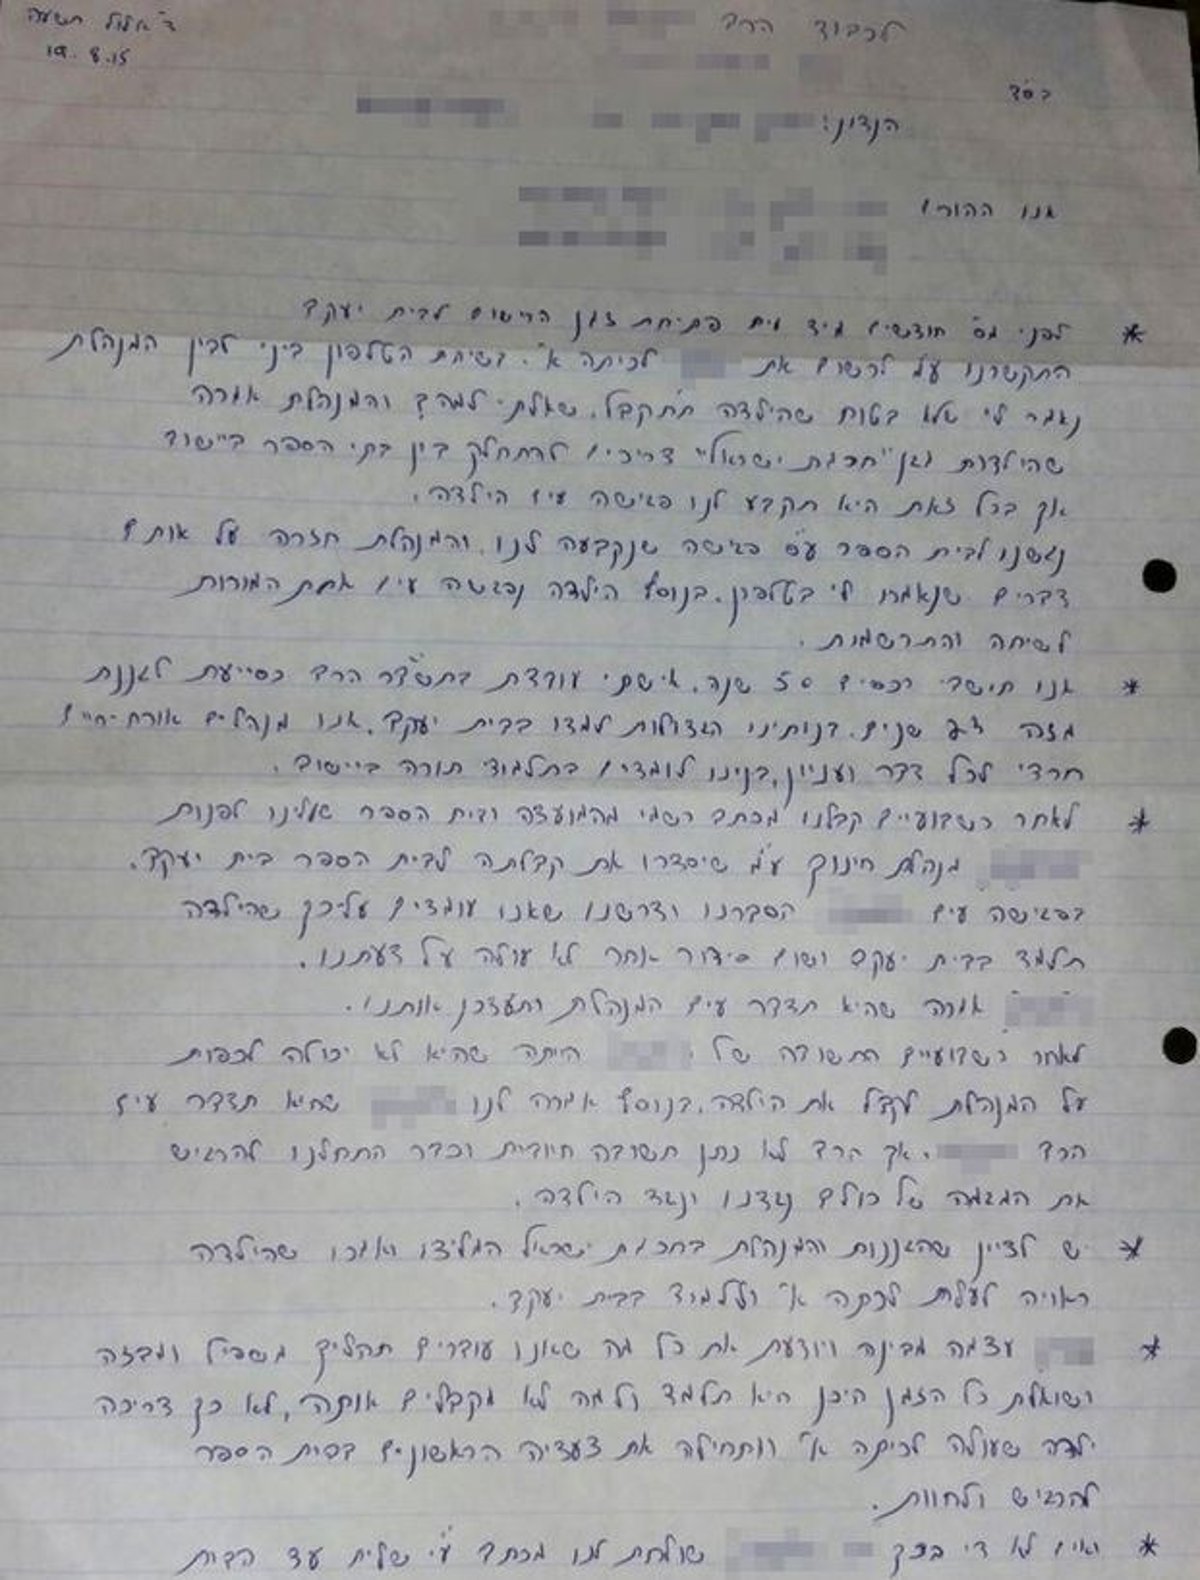 ד' אלול תשעה
לכבוד הרב
19.8.15
בסד
הנדון:
אנו ההורים
* לפני מס חודשים מיד עים פתיחת זמן הרישום לבית יעקב
התקשרנו על לרשום את לכיתה א'. בשיחת הטלפון ביני לבין המנהלת
נאמר לי שלא בטוח שהילדה תתקבל. שאלתי למה? והמנהלת אמרה
שהילדות מגן "חכמת ישראל" צריכים להתחלק בין בתי הספר ביישוב
אך בכל זאת היא תקבע לנו פגישה עים הילדה.
נגשנו לבית הספר עפ פגישה שנקבעה לנו, והמנהלת חזרה על אותם
דברים שנאמרו לי בטלפון. בנוסף הילדה נפגשה עים אחת המורות
לשיחה והתרשמות.
* אנו תושבי רכסים 50 שנה, אישתי עובדת בתשבר הרב כסייעת לגננת
מזה שנים. בנותינו הגדולות למדו בבית יעקב. אנו מנהלים אורח חיים
חרדי לכל דבר ועניין, בנינו לומדים בתלמודי תורה ביישוב.
* לאחר כשבועיים קבלנו מכתב רשמי מהמועצה ובית הספר שעלינו לפנות
מנהלת חינוך ע"מ שיסדרו את קבלתה לבית הספר בית יעקב.
בפגישה עים הסברנו ודרשנו שאנו עומדים עליכך שהילדה
תלמד בבית יעקב ושום סידור אחר לא עולה על דעתנו.
אמרה שהיא תדבר עים המנהלת ותעדכן אותנו.
לאחר כשבועיים התשובה של הייתה שהיא לא יכולה לכפות
על המנהלת לקבל את הילדה. בנוסף אמרה לנו שהיא תדבר עים
הרב . אך הרב לא נתן תשובה חיובית וכבר התחלנו להרגיש
את המגמה של כולם נגדנו ונגד הילדה.
* יש לציין שהגננות והמנהלת בחכמת ישראל המליצו ואמרו שהילדה
ראויה לעלות לכתה א' וללמוד בבית יעקב.
* עצמה מבינה ויודעת את כל מה שאנו עוברים תהליך משפיל ומבזה
ושואלת כל הזמן היכן היא תלמד ולמה לא מקבלים אותה, לא כך צריכה
ילדה שעולה לכיתה א' ומתחילה את צעדיה הראשונים בבית הספר
להרגיש ולחוות.
* ואים לא די בכך שולחת לנו מכתב ע"י שליח עד הבית